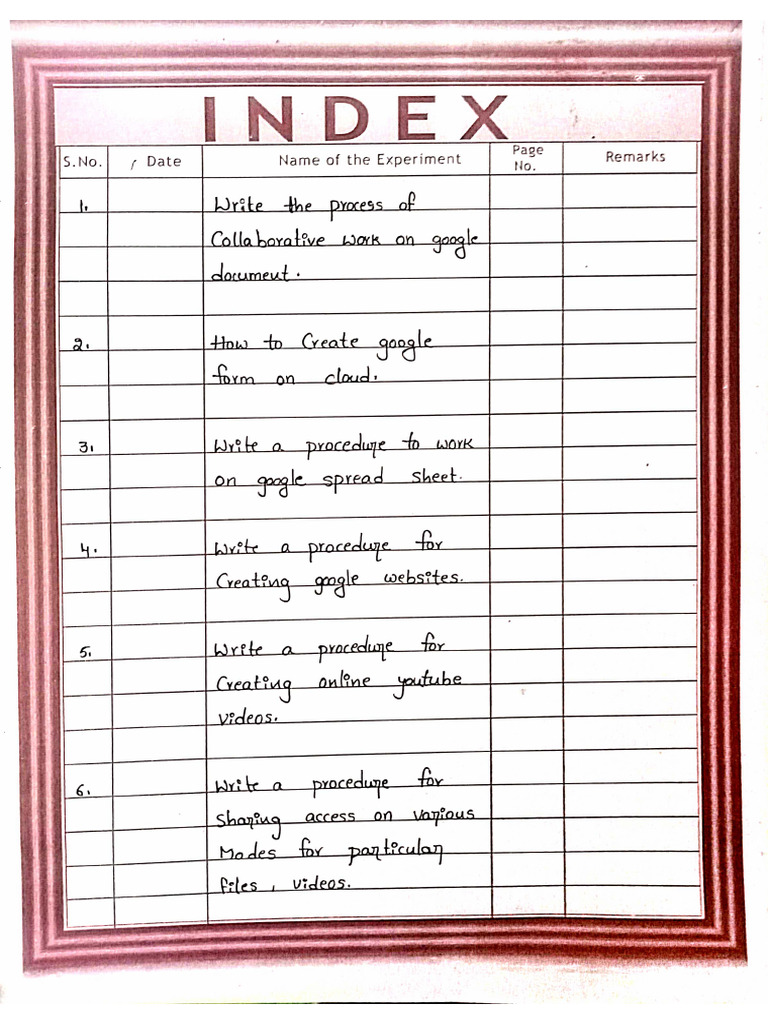 INDEX
S.No. Date Name of the Experiment Page No. Remarks
1. Write the process of
Collaborative work on google
document.
2. How to Create google
form on cloud.
3. Write a procedure to work
on google spread sheet.
4. Write a procedure for
Creating google websites.
5. Write a procedure for
Creating online youtube
videos.
6. Write a procedure for
Sharing access on various
Modes for particular
files, videos.